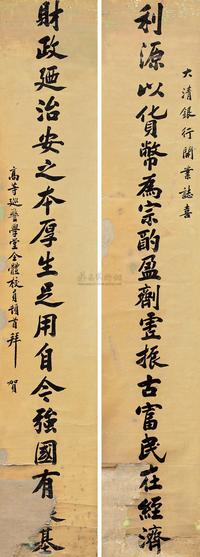 大清銀行開業誌喜
利源以貨幣為宗酌盈劑虛振古富民在經濟
財政廼治安之本厚生足用自今強國有基
高等巡警學堂全體校員頓首拜賀